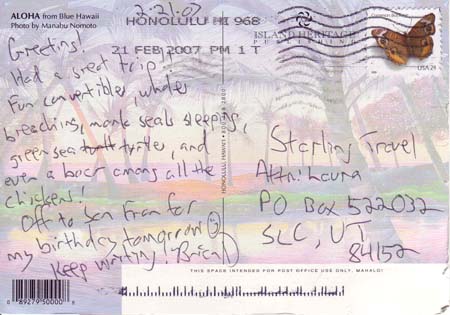 ALOHA from Blue Hawaii
Photo by Manabu Nomoto
2-21-07
HONOLULU HI 968
21 FEB 2007 PM 1 T
ISLAND HERITAGE
PUBLISHING
USA 24
Greetings!
Had a great trip.
Fun convertibles, whales
breaching, monk seals sleeping,
green sea turtle, and
even a boar among all the
chickens!
Off to San Fran for
my birthday tomorrow
Keep writing! Brian
Sterling Travel
Attn: Laura
PO Box 522032
SLC, UT
84152
HONOLULU, HAWAII
THIS SPACE INTENDED FOR POST OFFICE USE ONLY, MAHALO!
0 89279 50000 8